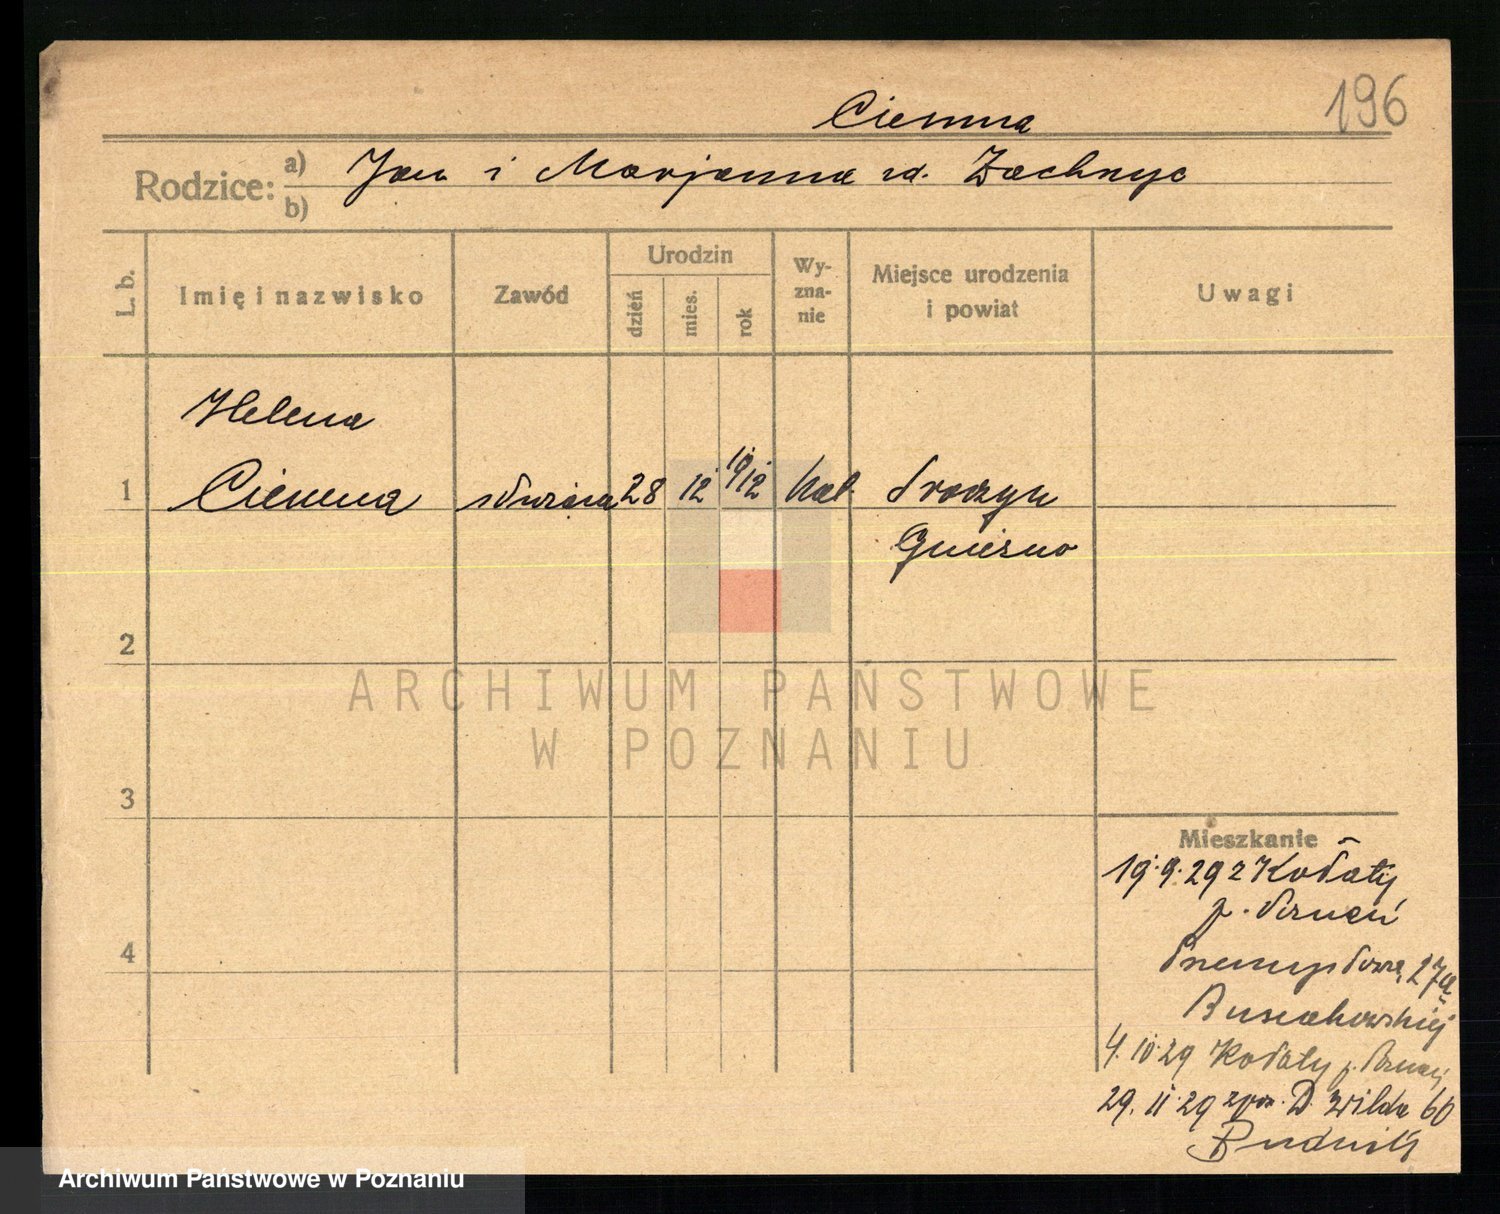 196
Ciemna
Rodzice: a) Jan i Marjanna zd. Zachnyc
b)
L. b. Imię i nazwisko Zawód Urodzin dzień mies. rok Wyznanie Miejsce urodzenia i powiat Uwagi
Helena
1 Ciemna służąca 28 12 1912 kat.
Gniezno
2
ARCHIWUM PAŃSTWOWE
W POZNANIU
3
Mieszkanie
19.9.29 z Kobatij
p.
4
27a
4.10.29 Kobaty p.
29.11.29 D. Wilda 60
Budnik
Archiwum Państwowe w Poznaniu